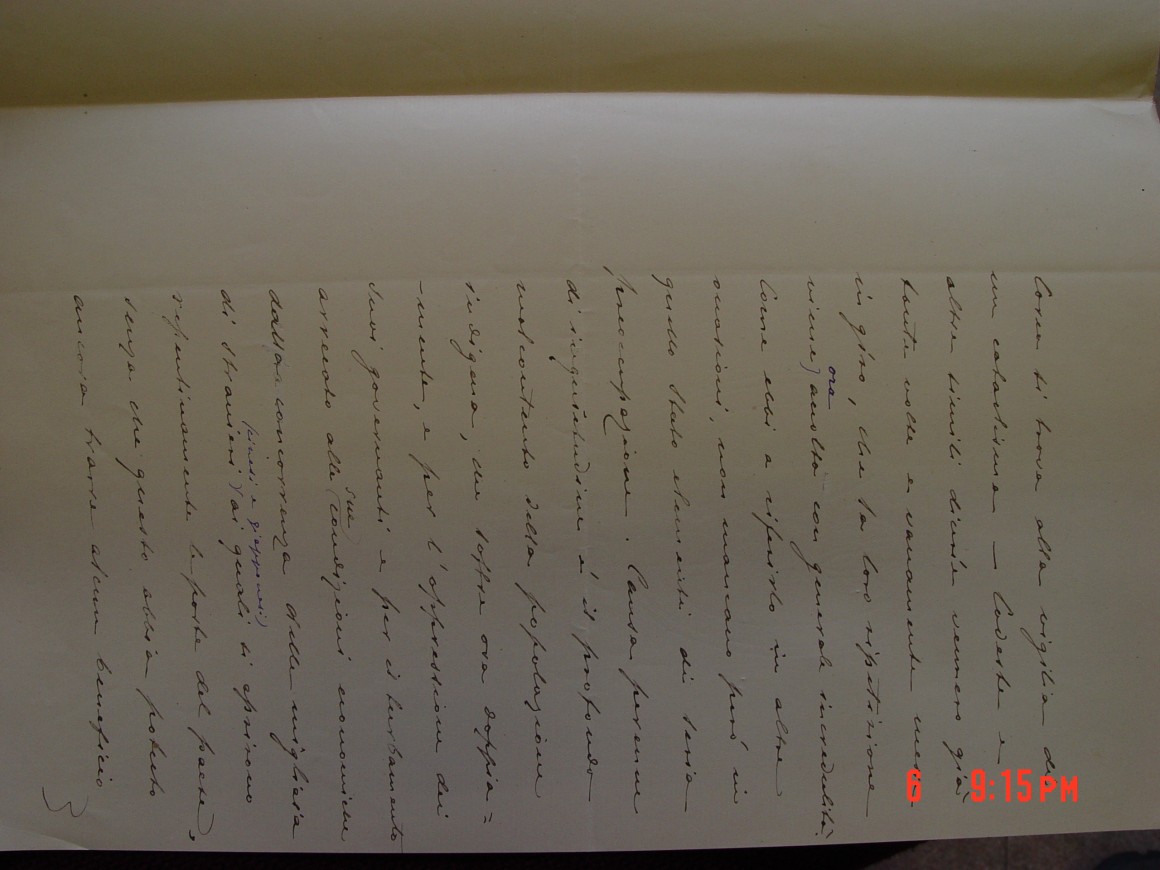 Corea si trova alla vigilia di
un cataclisma — Codeste e
altre simili dicerie vennero già
tante volte e vanamente messe
in giro, che la loro ripetizione
viene ora accolta con generale incredulità.
Come ebbi a riferirlo in altre
occasioni, non mancano però in
quello Stato elementi di seria
preoccupazione. Causa perenne
di inquietudine è il profondo
malcontento della popolazione
indigena, che soffre ora doppia=
-mente, e per l'oppressione dei
suoi governanti e per il turbamento
arrecato alle sue condizioni economiche
dalla concorrenza delle migliaia
di stranieri (cinesi e giapponesi) ai quali si aprirono
repentinamente le porte del paese,
senza che questo abbia potuto
ancora trarre alcun beneficio
6 9:15 PM